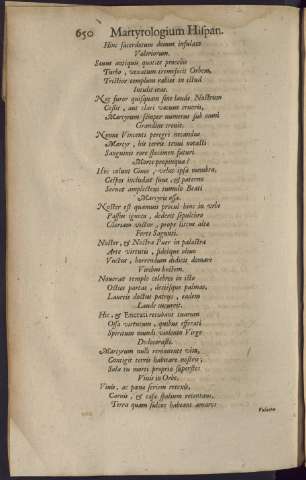 650 Martyrologium Hispan.
Hinc sacerdotum domus infulata
Valeriorum.
Sæuus antiquis quoties procellis
Turbo, vexatum tremefecit Orbem,
Tristior templum rabies in istud
Intulit iras.
Nec furor quisquam sine laude Nostrum
Cessit, aut clari vacuus cruoris,
Martyrum semper numerus sub omni
Grandine creuit.
Nonne Vincenti peregri necandus
Martyr, his terris tenui notasti
Sanguinis rore speciem futuri
Morte propinqua?
Hoc colunt Ciues, velut ipsa membra,
Cespes includat suus, & paterno
Seruet amplectens tumulo Beati
Martyris ossa.
Noster est quamuis procul hinc in vrbe
Passus ignota, dederit sepulchro
Gloriam victor, prope litus altæ
Forte Sagunti.
Noster, & Nostra Puer in palæstra
Arte virtutis, fideique oliuo
Vnctus, horrendum didicit domare
Viribus hostem.
Nouerat templo celebres in isto
Octies partas, deciesque palmas,
Laureis doctus patrijs, eadem
Laude cucurrit.
Hic, & Encrati recubant tuarum
Ossa virtutum, quibus efferati
Spiritum mundi violenta Virgo
Dedecorasti.
Martyrum nulli remanente vita,
Contigit terris habitare nostris;
Sola tu morti propriæ superstes
Viuis in Orbe.
Viuis, ac pœnæ seriem retexis,
Carnis, & cæsæ spolium retentans,
Tetra quam sulcos habeant amaros
Vulnera